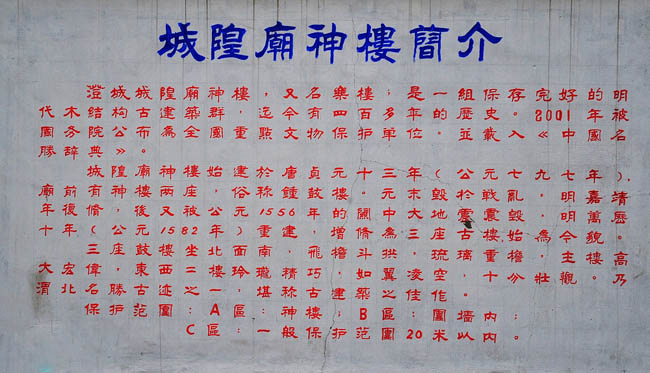 城隍廟神樓簡介
澄城城隍廟神樓,又名樂樓;是一組保存完好的明
代木結构古建築群,迄今有四百多年的歷史。2001年被
國務院公布為全國重點文物保护單位。並載入《中國名
勝辞典》。
城隍廟神樓始建於唐貞元十三年(公元七九七年),
廟前有神樓兩座,俗称鍾鼓樓。元末毀於戰亂,明嘉靖
年復脩,後又被公元1556年的關中大地震毀。明萬歷
十年(公元1582年)重建,增脩為三座古樓始為今貌。
三座鼓樓坐北面南,飛檐斗拱,琉璃 檐。主樓高
大宏偉,東西二樓玲瓏精巧,如翼凌空。十分壯觀。乃
渭北名勝古迹之一,堪称古建築之佳作。
保护范圍:A區:神樓;B區:圍墻内;
C區:一般保护范圍:20米以内。